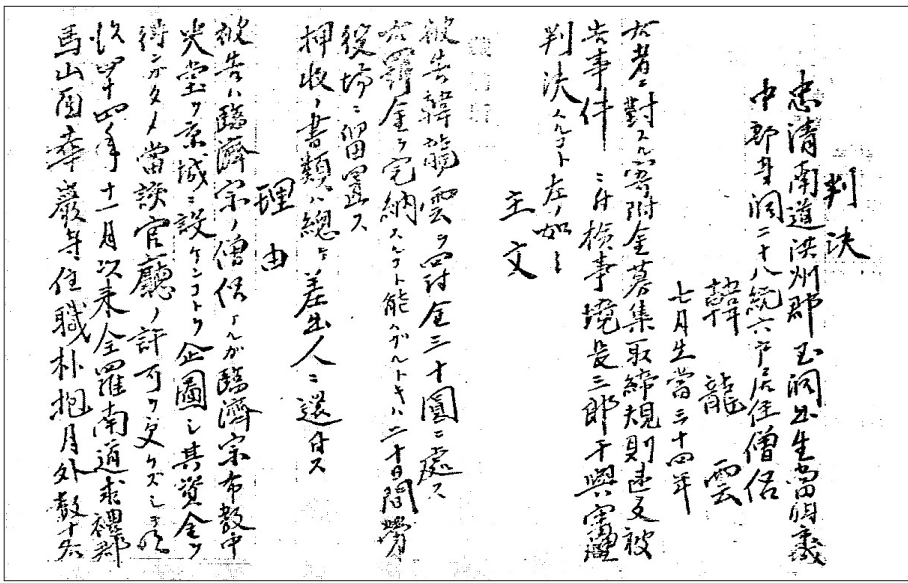 判決
忠清南道洪州郡玉洞出生當時義
中郡身洞二十八統六戸居住僧侶
韓龍雲
七月生當三十四年
右者ニ對スル寄附金募集取締規則違反被
告事件ニ付檢事境長三郎干與審理
判決スルコト左ノ如シ
主文
被告韓龍雲ヲ罰金三十圓ニ處ス
右罰金ヲ完納スルコト能ハザルトキハ二十日間勞
役場ニ留置ス
押收ノ書類ハ總テ差出人ニ還付ス
理由
被告ハ臨濟宗ノ僧侶ナルガ臨濟宗布教中
央堂ヲ京城ニ設ケンコトヲ企圖シ其資金ヲ
得ンガタメ當該官廳ノ許可ヲ受ケズシテ明
治四十四年十一月以来全羅南道求禮郡
馬山面華嚴寺住職朴抱月外數十名